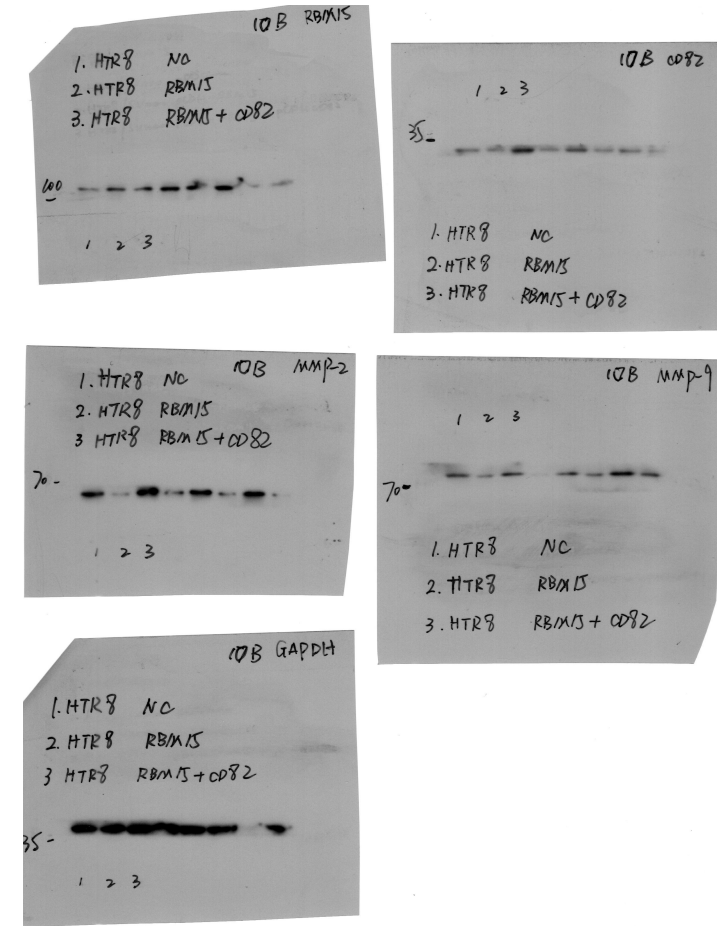 10B RBM15
1. HTR8 NC
2. HTR8 RBM15
3. HTR8 RBM15 + CD82
100
1 2 3
10B CD82
1 2 3
35-
1. HTR8 NC
2. HTR8 RBM15
3. HTR8 RBM15 + CD82
10B MMP-2
1. HTR8 NC
2. HTR8 RBM15
3 HTR8 RBM15 + CD82
70-
1 2 3
10B MMP-9
1 2 3
70-
1. HTR8 NC
2. HTR8 RBM15
3. HTR8 RBM15 + CD82
10B GAPDH
1. HTR8 NC
2. HTR8 RBM15
3 HTR8 RBM15 + CD82
35-
1 2 3